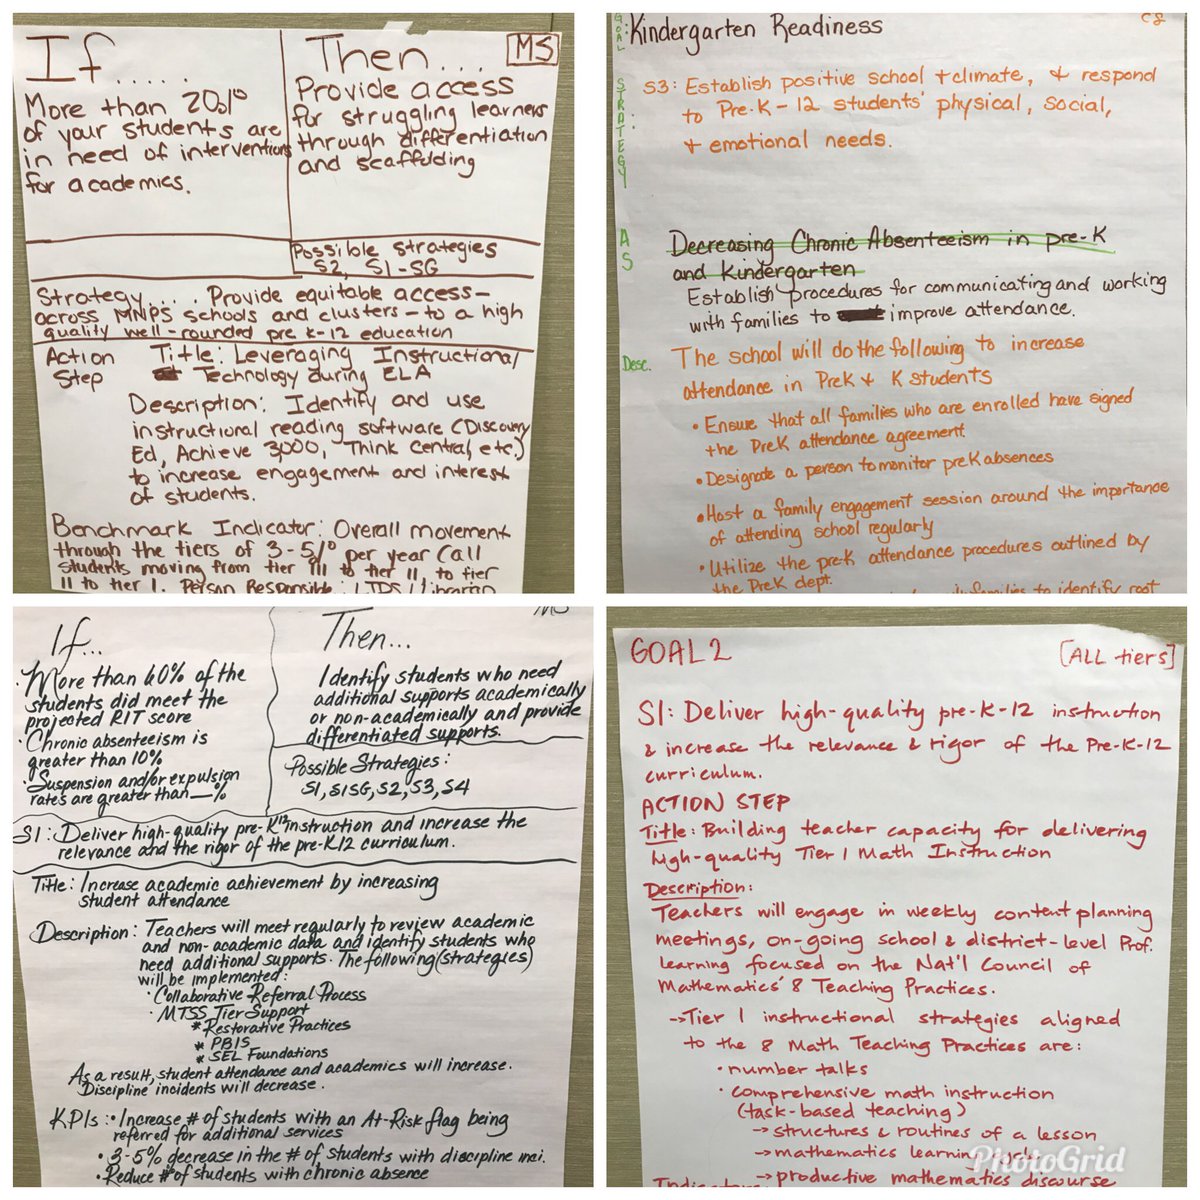 If.....
More than 20%
of your students are
in need of interventions
for academics.
Then...
MS
Provide access
for struggling learners
through differentiation
and scaffolding
Possible Strategies
S2, S1-SG
Strategy.... Provide equitable access-
across MNPS schools and clusters-to a high
quality well-rounded pre k-12 education
Action
Step
Title: Leveraging Instructional
Technology during ELA
Description: Identify and use
instructional reading software (Discovery
Ed, Achieve 3000, Think Central, etc.)
to increase engagement and interest
of students.
Benchmark Indicator: Overall movement
through the tiers of 3-5% per year (all
students moving from tier III to tier II to tier
II to tier I. Person Responsible: LITDS/Librarian
GOAL:
Kindergarten Readiness
STRATEGY
S3: Establish positive school + climate, + respond
to Pre-K-12 students' physical, social,
+ emotional needs.
AS
Decreasing Chronic Absenteeism in pre-K
and Kindergarten
Establish procedures for communicating and working
with families to improve attendance.
Desc.
The school will do the following to increase
attendance in PreK + K students
• Ensure that all families who are enrolled have signed
the PreK attendance agreement.
• Designate a person to monitor preK absences
• Host a family engagement session around the importance
of attending school regularly
• Utilize the preK attendance procedures outlined by
the PreK dept.
families to identify root
If...
• More than 60% of the
students did meet the
projected RIT score
• Chronic absenteeism is
greater than 10%
• Suspension and/or expulsion
rates are greater than __%
MS
Then...
Identify students who need
additional supports academically
or non-academically and provide
differentiated supports.
Possible Strategies:
S1, S1SG, S2, S3, S4
S1: Deliver high-quality pre-K12 instruction and increase the
relevance and the rigor of the pre-K12 curriculum.
Title: Increase academic achievement by increasing
student attendance
Description: Teachers will meet regularly to review academic
and non-academic data and identify students who
need additional supports. The following (strategies)
will be implemented:
• Collaborative Referral Process
• MTSS Tier Support
* Restorative Practices
* PBIS
* SEL Foundations
As a result, student attendance and academics will increase.
Discipline incidents will decrease.
KPIs: • Increase # of students with an At-Risk flag being
referred for additional services
• 3-5% decrease in the # of students with discipline inci.
• Reduce # of students with chronic absence
GOAL 2
[ALL tiers]
S1: Deliver high-quality pre-K-12 instruction
& increase the relevance & rigor of the Pre-K-12
curriculum.
ACTION STEP
Title: Building teacher capacity for delivering
high-quality Tier 1 Math Instruction
Description:
Teachers will engage in weekly content planning
meetings, on-going school & district-level Prof.
learning focused on the Nat'l Council of
Mathematics' 8 Teaching Practices.
→Tier 1 instructional strategies aligned
to the 8 Math Teaching Practices are:
• number talks
• comprehensive math instruction
(task-based teaching)
→ structures & routines of a lesson
→ mathematics learning
→ productive mathematics discourse
PhotoGrid